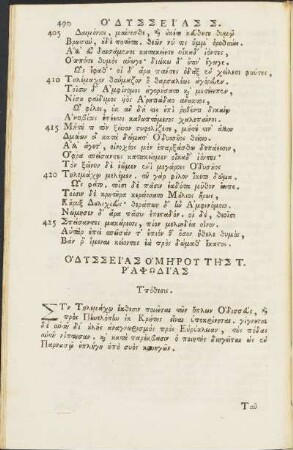 490 ὈΔΥΣΣΕΊΑΣ Σ.
405 Δαιμόνιοι, μαίνεσθε, καὶ οὐκέτι κεύθετε θυμῷ
Βρωτὺν, οὐδὲ ποτῆτα. θεῶν νύ τις ὔμμ' ὀροθύνει.
Ἀλλ' εὖ δαισάμενοι κατακείετε οἴκαδ' ἰόντες,
Ὁππότε θυμὸς ἄνωγε· διώκω δ' οὔτιν' ἔγωγε.
Ὣς ἔφαθ'· οἱ δ' ἄρα πάντες ὀδὰξ ἐν χείλεσι φύντες,
410 Τηλέμαχον θαύμαζον ὃ θαρσαλέως ἀγόρευε.
Τοῖσιν δ' Ἀμφίνομος ἀγορήσατο καὶ μετέειπεν,
Νίσου φαίδιμος υἱὸς Ἀρητιάδαο ἄνακτος.
Ὦ φίλοι, οὐκ ἂν δή τις ἐπὶ ῥηθέντι δικαίῳ
Ἀντιβίοις ἐπέεσσι καθαπτόμενος χαλεπαίνοι.
415 Μήτέ τι τὸν ξεῖνον στυφελίζετε, μήτέ τιν' ἄλλον
Δμώων οἳ κατὰ δώματ' Ὀδυσσῆος θείοιο.
Ἀλλ' ἄγετ', οἰνοχόος μὲν ἐπαρξάσθω δεπάεσσιν,
Ὄφρα σπείσαντες κατακείομεν οἴκαδ' ἰόντες·
Τὸν ξεῖνον δὲ ἐῶμεν ἐνὶ μεγάροις Ὀδυσῆος
420 Τηλεμάχῳ μελέμεν. οὗ γὰρ φίλον ἵκετο δῶμα.
Ὣς φάτο. τοῖσι δὲ πᾶσιν ἑαδότα μῦθον ἔειπε.
Τοῖσιν δὲ κρητῆρα κεράσσατο Μούλιος ἥρως,
Κῆρυξ Δουλιχιεύς· θεράπων δ' ἦν Ἀμφινόμοιο.
Νώμησεν δ' ἄρα πᾶσιν ἐπισταδόν. οἱ δὲ, θεοῖσι
425 Σπείσαντες μακάρεσσι, πίον μελιηδέα οἶνον.
Αὐτὰρ ἐπεὶ σπεῖσάν τ' ἔπιόν θ' ὅσον ἤθελε θυμὸς,
Βάν ῥ' ἴμεναι κείοντες ἑὰ πρὸς δώμαθ' ἕκαστος.
ὈΔΥΣΣΕΊΑΣ ὉΜΉΡΟΥ ΤΗ͂Σ Τ.
ῬΑΨΩΔΊΑΣ
Ὑπόθεσις.
ΣῪΝ Τηλεμάχῳ ἔκθεσιν ποιεῖται τῶν ὅπλων Ὀδυσσεὺς, καὶ
πρὸς Πηνελόπην ἐκ Κρήτης εἶναι ὑποκρίνεται. γίγνεται
δὲ αὐτῷ δι' οὐλῆς ἀναγνωρισμὸς πρὸς Εὐρύκλειαν, τοὺς πόδας
αὐτὸν νίπτουσαν. καὶ κατὰ παρέκβασιν ὁ ποιητὴς διηγεῖται ὡς ἐν
Παρνασῷ ἐπλήγη ὑπὸ συὸς κυνηγῶν.
Τοῦ